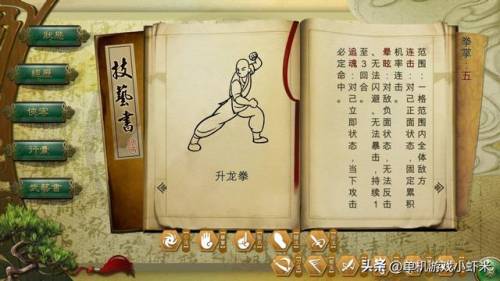 狀態
經歷
俠客
行囊
武藝書
技藝書
升龙拳
拳掌：五
范围：一格范围内全体敌方
连击：对己正面状态，固定累积
机率连击。
晕眩：对敌负面状态，无法反击
、无法闪避、无法暴击，持续1
至3回合。
追魂：对己立即状态，当下攻击
必定命中。
头条 @单机游戏小虾米